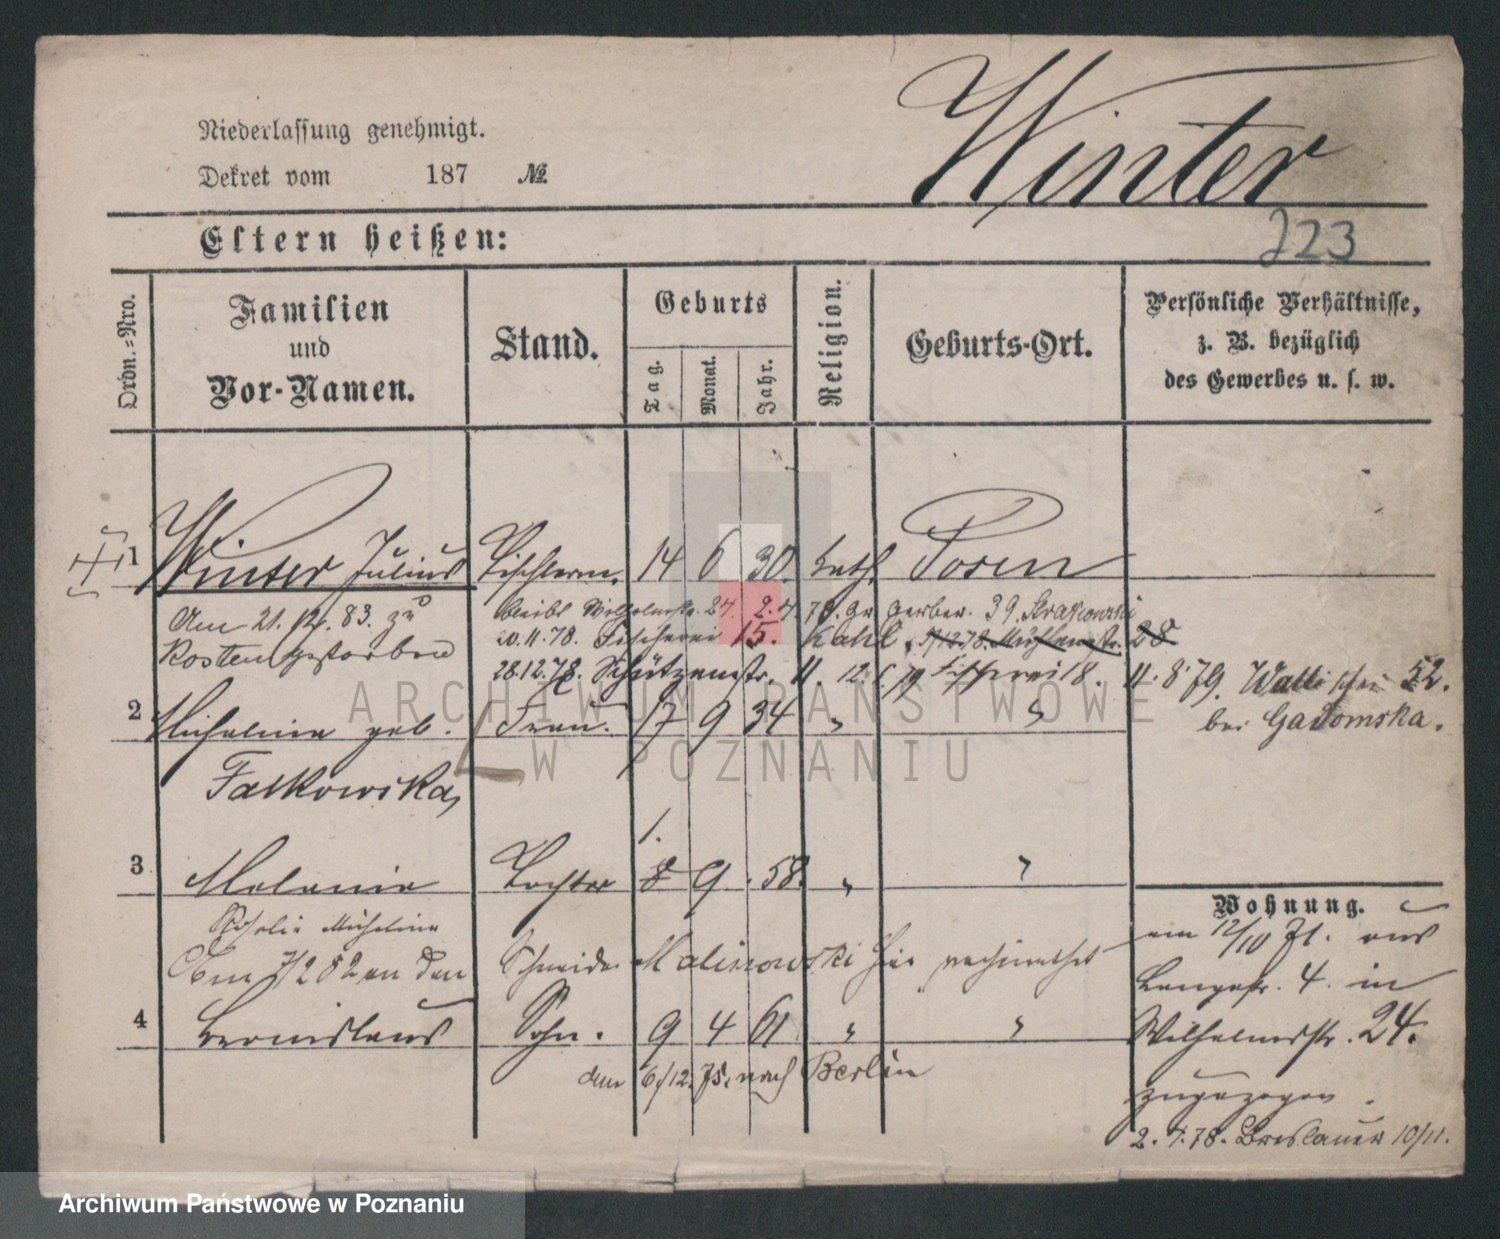 Winter
Niederlassung genehmigt.
Dekret vom 187 №
223
Eltern heißen:
Ordn.-Nro.
Familien
und
Vor-Namen.
Stand.
Geburts
Tag.
Monat.
Jahr.
Religion.
Geburts-Ort.
Persönliche Verhältnisse,
z. B. bezüglich
des Gewerbes u. s. w.
1 Winter Julius Tischlerm. 14 6 30. kath. Posen
Am 21. 12. 83. zu
Kosten gestorben
Wilhelmstr. 24. 2. 4. 78. Gr. Gerber. 39. Strakowski
20. 11. 78. Fischerei 15. Kahl. Mühlenstr. 28
28.12.78. Schützenstr. 11. 12. 6 79 Fischerei 18. 11. 8. 79. Wallischei 52.
bei Gadomska.
2 Michalina geb. Frau. 17 9 34 " "
Falkowska,
1.
3 Melania Tochter 8 9. 58. " "
Rosalie Michalina
Am 7/2 82 an den Schneider Malinowski hier verheirathet
4 Bronislaus Sohn. 9 4 61 " "
den 6/12. 75. nach Berlin
Wohnung.
am 12/10 Js. aus
Langestr. 4. in
Wilhelmstr. 24.
zugezogen.
2. 4. 78. Breslauer 10/11.
ARCHIWUM PAŃSTWOWE
W POZNANIU
Archiwum Państwowe w Poznaniu